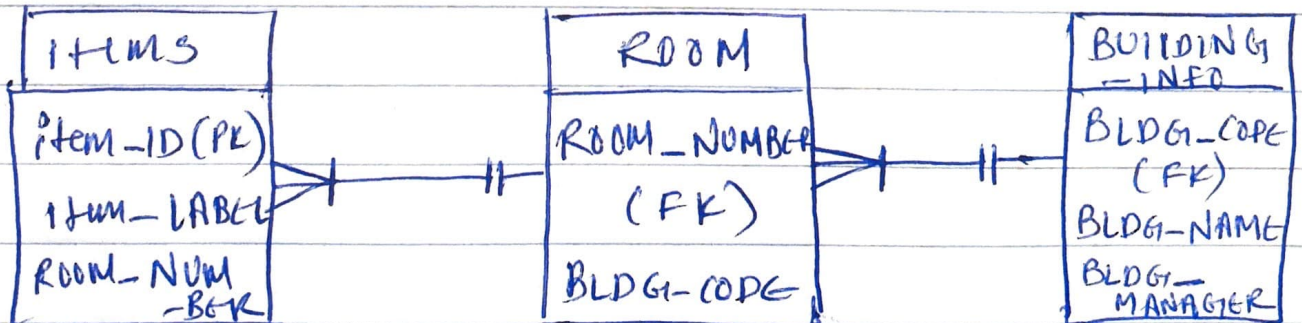 items
item_ID (PK)
item_LABEL
ROOM_NUM
-BER
ROOM
ROOM_NUMBER
(FK)
BLDG_CODE
BUILDING
-INFO
BLDG_CODE
(FK)
BLDG_NAME
BLDG_
MANAGER